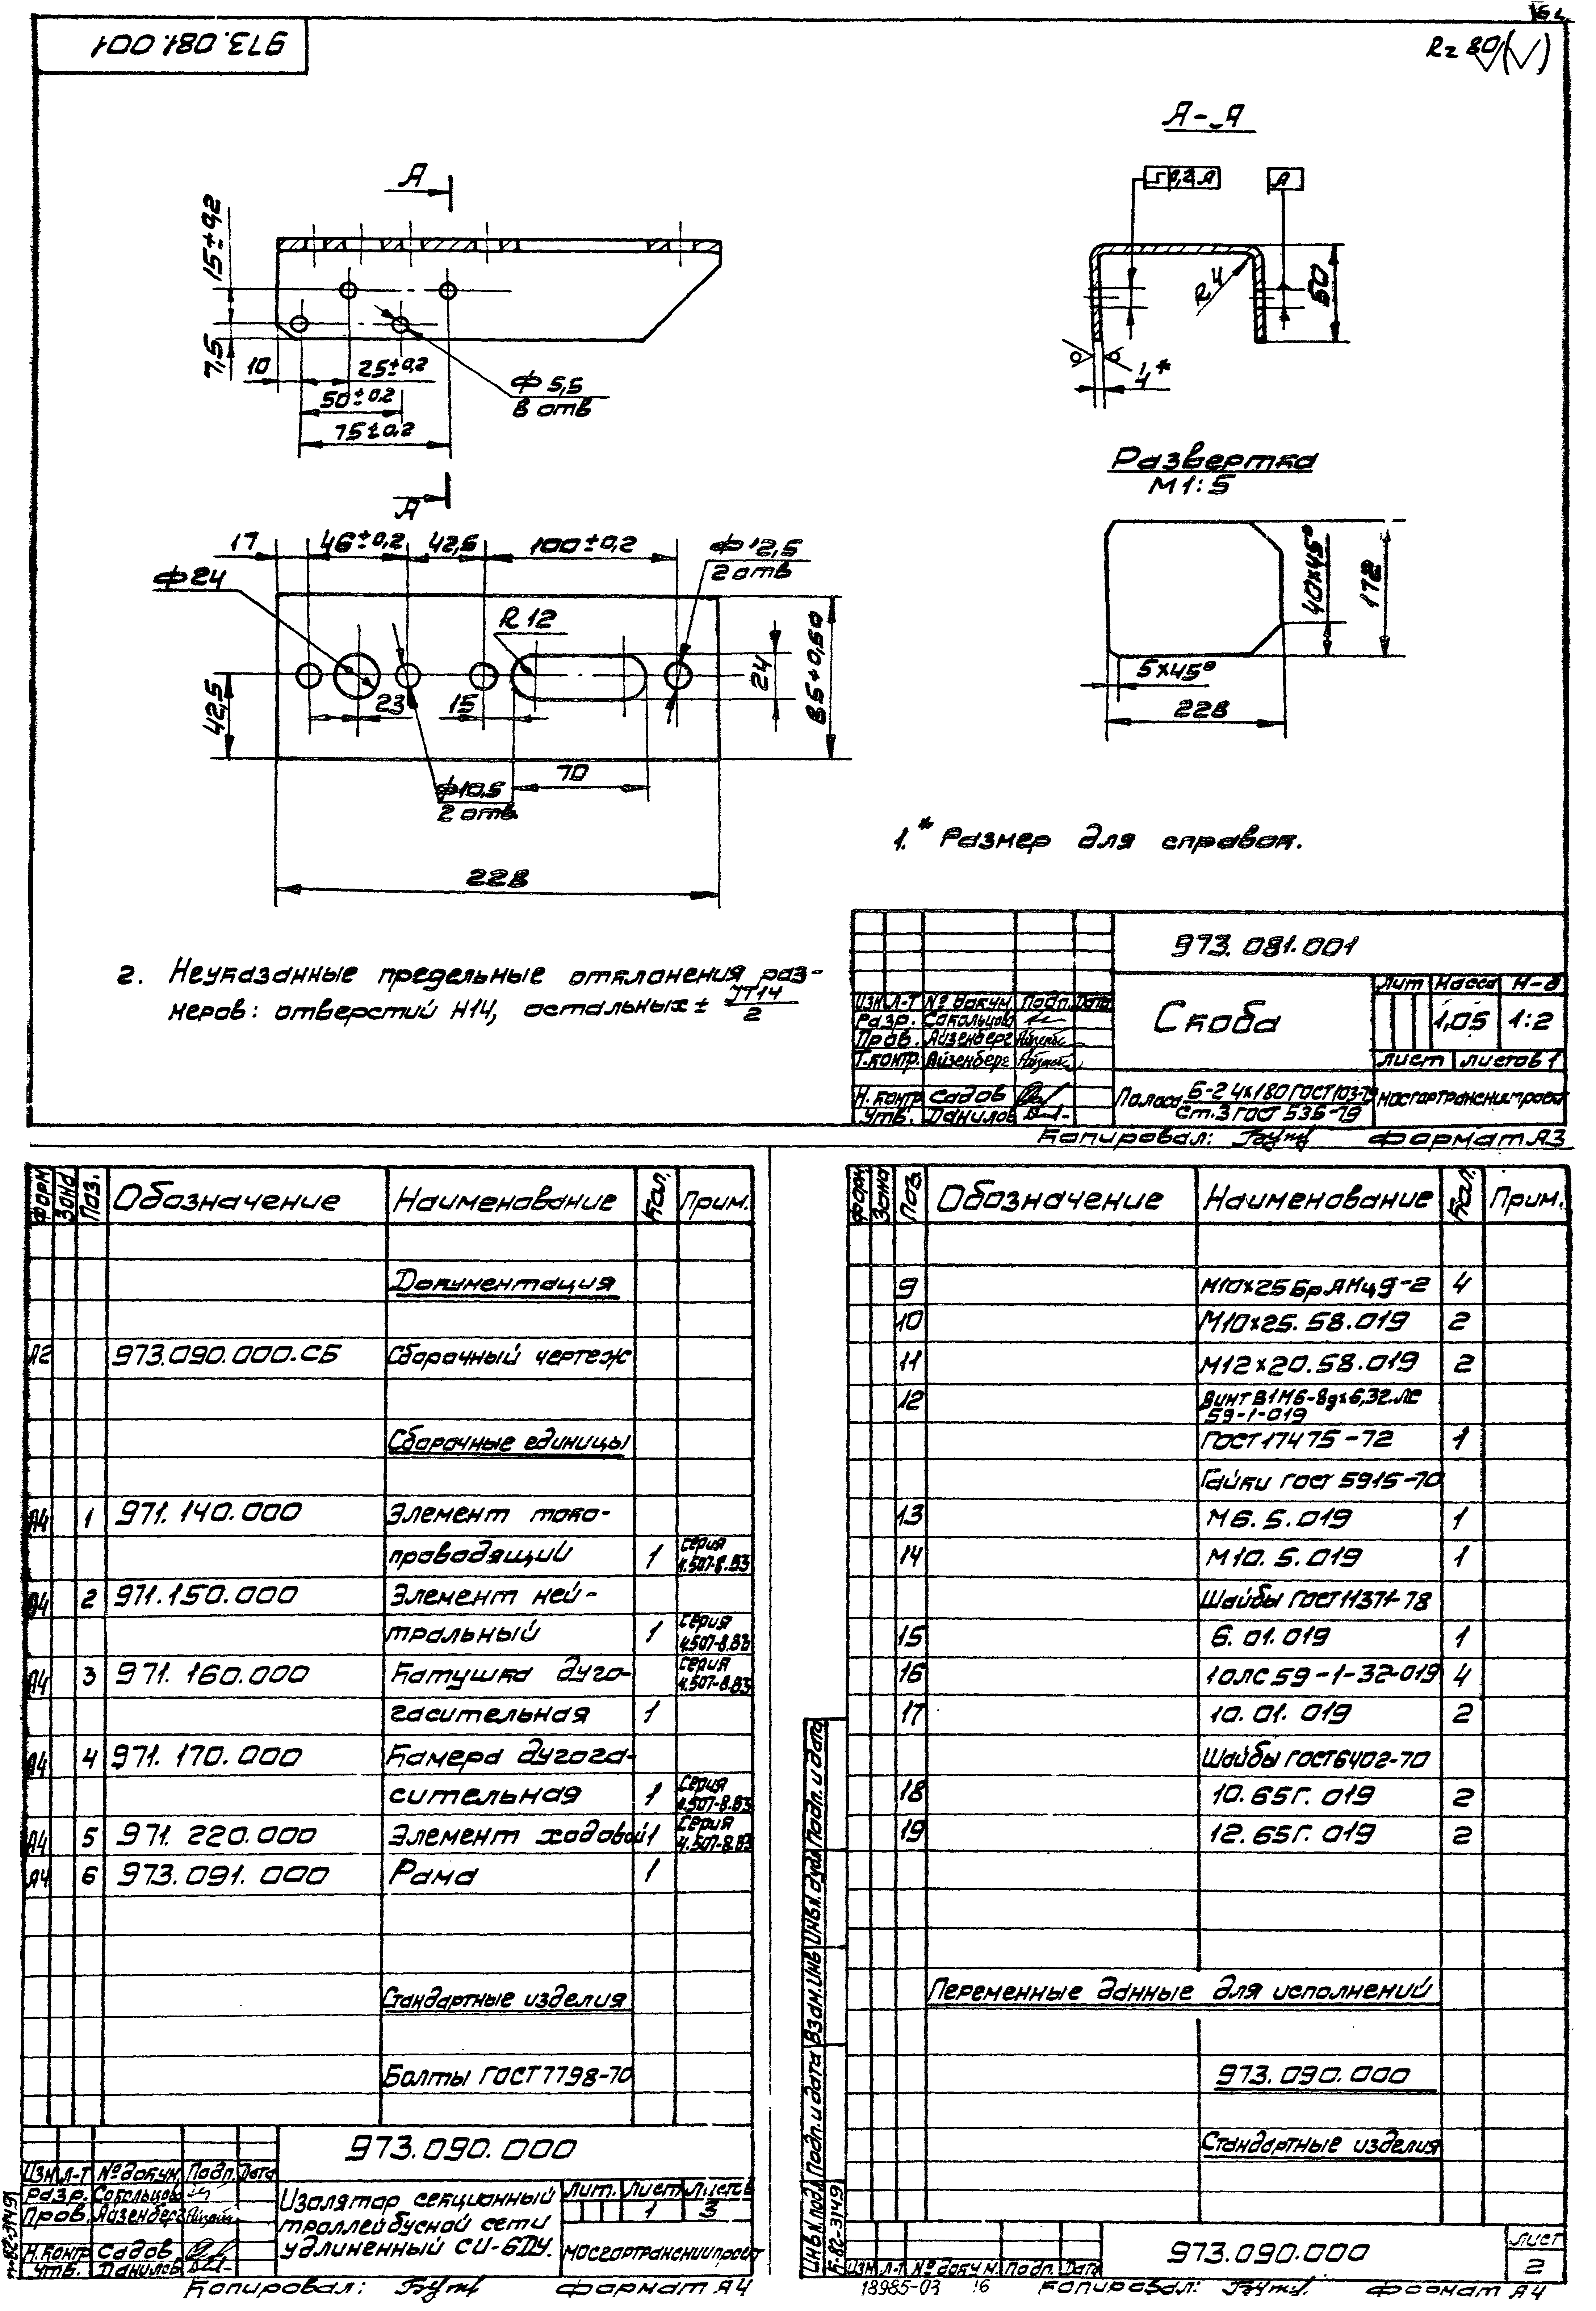 973.081.001
Rz 80 (√)
А-А
А
0,2 А
А
15±0,2
7,5
10
25±0,2
50±0,2
75±0,2
Ф 5,5
8 отв
R4
50
4*
А
Развертка
М 1:5
17
46±0,2
42,5
100±0,2
Ф12,5
2 отв
Ф24
R 12
42,5
23
15
24
85+0,60
Ф10,5
2 отв.
70
228
40×45°
172
5×45°
228
1.* Размер для справок.
2. Неуказанные предельные отклонения раз-
меров: отверстий Н14, остальных ± JT14/2
973.081.001
Изм Л-т № докум. Подп. Дата
Разр. Сокольцова
Пров. Айзенберг
Т.контр. Айзенберг
Н.контр Садов
Утв. Данилов
Скоба
Лит Масса М-б
1,05 1:2
Лист Листов 1
Полоса Б-2 4×180 ГОСТ 103-76
Ст.3 ГОСТ 535-79
Мосгортрансниипроект
Копировал: Формат А3
Форм Зона Поз. Обозначение Наименование Кол. Прим.
Документация
А2 973.090.000.СБ Сборочный чертеж
Сборочные единицы
А4 1 971.140.000 Элемент токо-
проводящий 1 серия 4.507-8.В3
А4 2 971.150.000 Элемент ней-
тральный 1 серия 4.507-8.В3
А4 3 971.160.000 Катушка дуго- серия 4.507-8.В3
гасительная 1
А4 4 971.170.000 Камера дугога-
сительная 1 серия 4.507-8.В3
А4 5 971.220.000 Элемент ходовой 1 серия 4.507-8.В3
А4 6 973.091.000 Рама 1
Стандартные изделия
Болты ГОСТ 7798-70
973.090.000
Изм Л-т № докум. Подп. Дата
Разр. Сокольцова
Пров. Айзенберг
Н.контр Садов
Утв. Данилов
Изолятор секционный
троллейбусной сети
удлиненный СИ-6ДУ.
Лит. Лист Листов
1 3
Мосгортрансниипроект
Копировал: Формат А4
Форм Зона Поз. Обозначение Наименование Кол. Прим.
9 М10×25 Бр АМц9-2 4
10 М10×25.58.019 2
11 М12×20.58.019 2
12 Винт В1М6-8g×6,32.ЛС
59-1-019
ГОСТ 17475-72 1
Гайки ГОСТ 5915-70
13 М6.5.019 1
14 М10.5.019 1
Шайбы ГОСТ 11371-78
15 6.01.019 1
16 10ЛС59-1-32-019 4
17 10.01.019 2
Шайбы ГОСТ 6402-70
18 10.65Г.019 2
19 12.65Г.019 2
Переменные данные для исполнений
973.090.000
Стандартные изделия
Инв.№ подл. Подп. и дата Взам. инв Инв.№ дубл Подп. и дата
Изм Л-т № докум. Подп. Дата
973.090.000
Лист
2
18985-03 16 Копировал: Формат А4